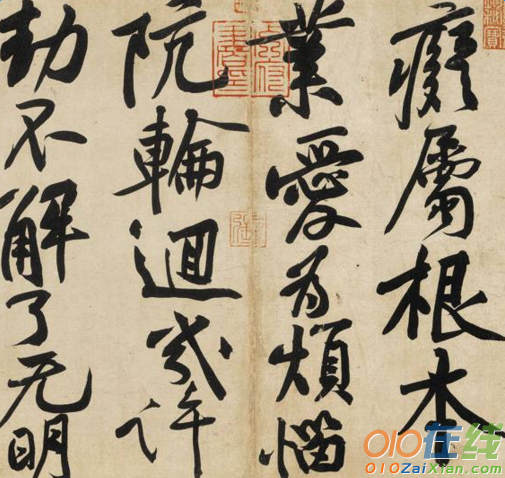 癡屬根本
業愛為煩惱
阬輪迴幾許
劫不解了无明
010在线
010ZaiXian.com